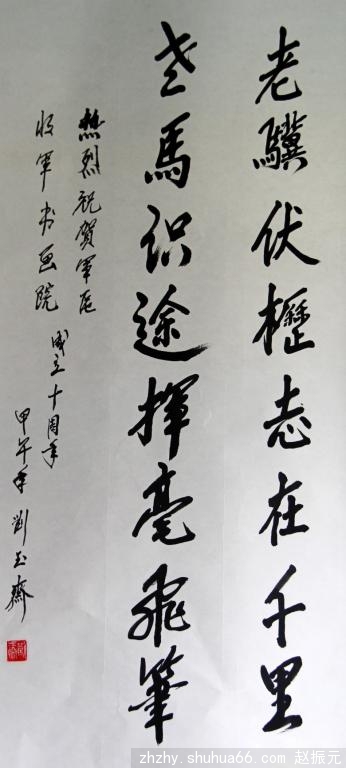 老驥伏櫪志在千里
老馬识途揮毫飛筆
热烈祝賀軍区
将軍书画院
成立十周年
甲午年 刘玉齋
zhzhy.shuhua66.com 赵振元